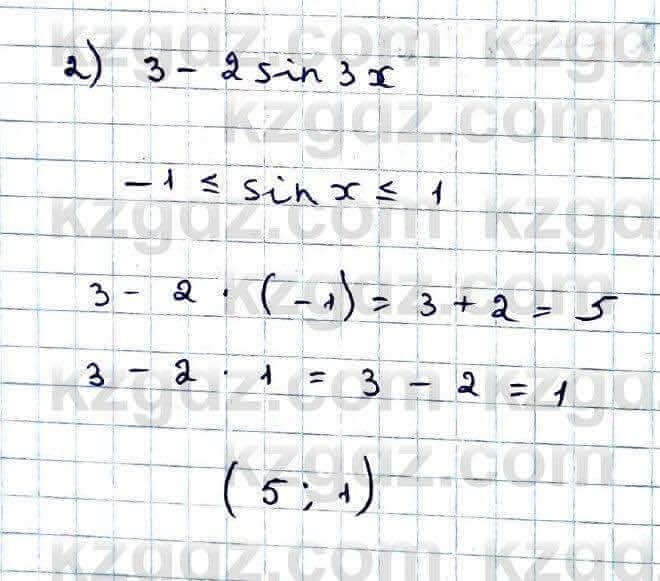 2) 3 - 2 sin 3x
-1 ≤ sin x ≤ 1
3 - 2 · (-1) = 3 + 2 = 5
3 - 2 · 1 = 3 - 2 = 1
(5; 1)
kzgdz.com kzgdz.com
kzgdz.com
kzgdz.com kzgdz.com
kzgdz.com
kzgdz.com kzgdz.com
kzgdz.com
kzgdz.com kzgdz.com